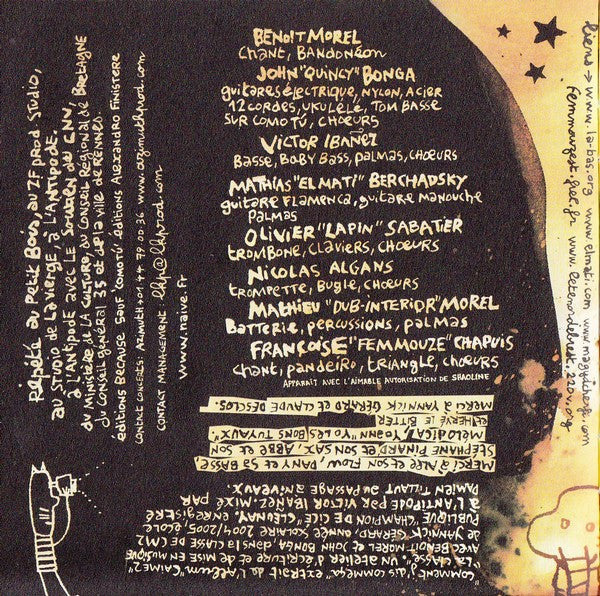 BENOîT MOREL
chant, BANDONéon
JOHN "QUINCY" BONGA
guitares électrique, NYLON, ACIER
12 cordes, ukulélé, TOM BASSE
SUR COMO TÚ, CHœURS
VICTOR IBAÑEZ
Basse, BABY BASS, palmas, chœurs
MATHIAS "EL MATI" BERCHADSKY
guitare FLAMENCA, guitare manouche
palmas
OLIVIER "LAPIN" SABATIER
TROMBONE, claviers, chœurs
NICOLAS ALGANS
trompette, Bugle, chœurs
MATHIEU "DUB-INTERIOR" MOREL
Batterie, percussions, palmas
FRANÇOISE "FEMMOUZE" CHAPUIS
chant, pandeiro, triangle, chœurs
APPARAîT AVEC L'AIMABLE AUTORISATION DE SHAOLINE
Répété au Petit Bois, au ZF prod studio,
au STUDIO DE LA VIERGE, à L'ANTIPODE.
à L'ANTIPODE avec LE SOUTIEN du CNV,
du Ministère de LA CULTURE, du Conseil Régional de Bretagne
du Conseil général 35 et de la ville de Rennes.
éditions BECAUSE sauf COMO TÚ éditions Alexandro FINISTERE
contact concerts: AZIMUTH +01 44 79 00 36 www.azimuthprod.com
contact MANAGEMENT lhp@lhprod.com
www.naive.fr
liens > www.la-bas.org www.elmati.com www.magyd
femmouzest.free.fr www.letenordebrest.22v.org
MERCI à ALEE et son FLOW, DANY et sa BASSE
STEPHANE PINARD et son SAX, ABBE et son
MELODICA, YOANN "YO LES BONS TUYAUX"
et HERVE LE BITTER
MERCI à YANNICK GERARD et CLAUDE DESCLOS.
"COMMENT ça COMMENçA" extrait de l'ALBUM "CM2
LA CLASSE", UN atelier d'écriture et de mise en musique
avec BENOIT MOREL et JOHN BONGA, dans la classe DE CM2
de YANNICK GERARD, année scolaire 2004/2005, école
PUBLIQUE "CHAMPION DE CICE" CLEUNAY, enregistré
à L'ANTIPODE par VICTOR IBAÑEZ. MIXé PAR
DAMIEN TILLAUT au PASSAGE à NIVEAUX.